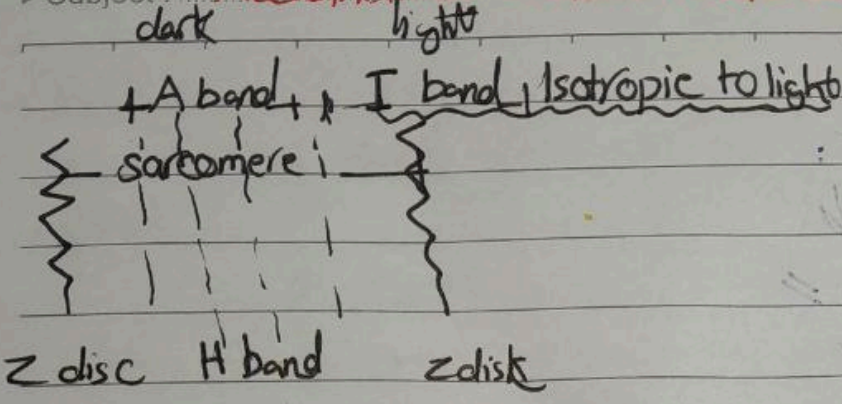 dark light
A band I band Isotropic to light
sarcomere
Z disc H band Z disk